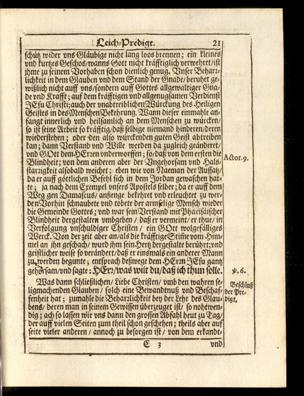 Leich-Predigt. 21
schütz wider uns Gläubige nicht lang loos brennen; ein kleines
und kurtzes Geschos/ wanns Gott nicht kräfftiglich verwehret/ ist
ihme zu seinem Vorhaben schon dienlich genug. Unser Beharr-
lichkeit in dem Glauben und dem Stand der Gnade/ beruhet ge-
wißlich nicht auff uns/ sondern auff Gottes allgewaltiger Gna-
de und Krafft; auf dem kräfftigen und allgenugsamen Verdienst
JEsu Christi; auch der unabtreiblichen Würckung des Heiligen
Geistes in des Menschen Bekehrung. Wann dieser einmahle an-
fanget innerlich und heilsamlich an dem Menschen zu würcken
so ist seine Arbeit so kräfftig/ daß selbige niemand hinderen/ deren
wiederstehen; oder den also würckenden guten Geist abtreiben
kan; dann Verstand und Wille werden da zugleich geändert/
und GOtt dem HErrn unterworffen; so daß von dem ersten die
Blindheit; von dem anderen aber der Ungehorsam und Hals-
starrigkeit alsobald weichet: eben wie von Naeman der Aussatz/
da er auff göttlichen Befehl sich in dem Jordan gewaschen hat-
te; ja nach dem Exempel unsers Apostels selber; da er auff dem
Weg gen Damascus/ anfangs bekehret und erleuchtet zu wor-
den. Vorhin schnaubete und tobete der armselige Mensch wieder
die Gemeinde Gottes; und war sein Verstand mit Pharisäischer
Blindheit dergestalten umbgeben/ daß er vermeint/ er thue/ in
Verfolgung unschuldiger Christen/ ein GOtt wolgefälliges
Werck. Von der Zeit an als die kräfftige Stimme vom Him-
mel an ihn geschach/ wurd ihm sein Hertz dergestalte berühret/ und
geistlicher weise so verändert/ daß er niemals ein anderer Mann
zu werden begunte; entsprach deswege dem HErrn JEsu gantz
gehorsam/ und sagte: HErr/ was wilt du/ daß ich thun solle.
Was dann schließlichen/ Liebe Christen/ umb den wahren se-
ligmachenden Glauben/ solch eine Bewandtnuß und Beschaf-
fenheit hat; zumahle die Beharrlichkeit bey der Lehr des Glau-
bens/ deren man in seinem Gewissen überzeuget ist/ so nohtwen-
dig; ach so lassen wir uns dann den grossen Abfahl heut zu Tag/
der auff vielen Seiten zum theil schon geschehen; theils aber auff
seite vieler anderen/ annoch zu besorgen ist/ von dem erkandt-
E 3 und
Actor. 9.
v. 6.
Beschluß
der Pre-
digt.